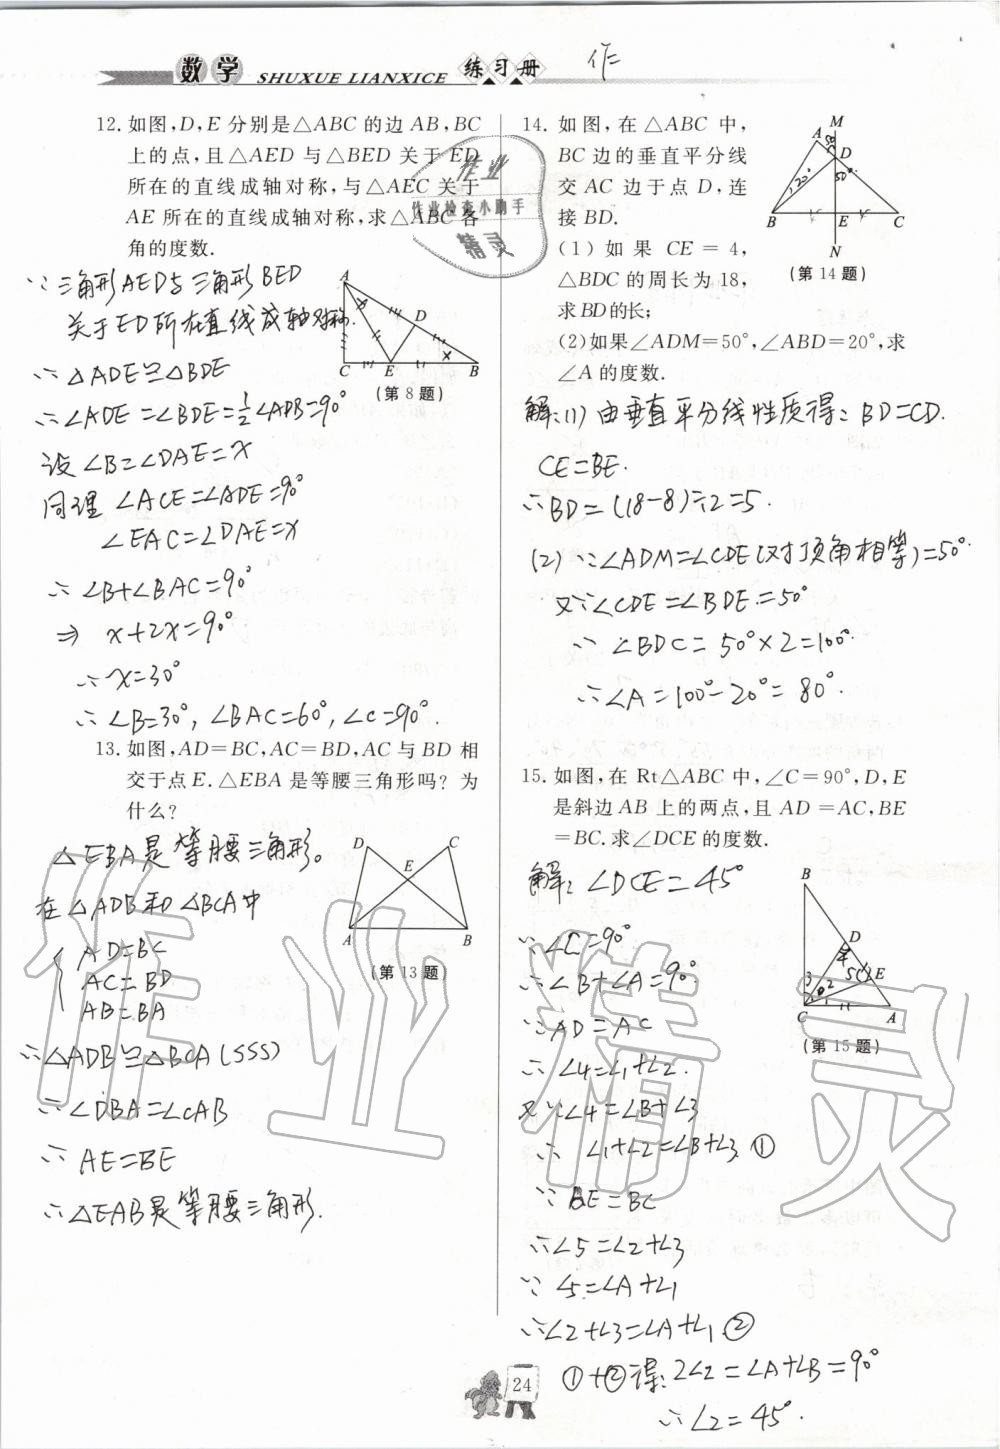 数学 SHUXUE LIANXICE 练习册
作
12. 如图,D,E 分别是△ABC 的边 AB,BC
上的点,且△AED 与△BED 关于 ED
所在的直线成轴对称,与△AEC 关于
AE 所在的直线成轴对称,求△ABC 各
角的度数.
作业
作业检查小助手
精灵
∵三角形AED与三角形BED
关于ED所在直线成轴对称.
∴△ADE≌△BDE
∴∠ADE=∠BDE=½∠ADB=90°
设∠B=∠DAE=x
同理 ∠ACE=∠ADE=90°
∠EAC=∠DAE=x
∴∠B+∠BAC=90°
⇒ x+2x=90°
∴x=30°
∴∠B=30°, ∠BAC=60°, ∠C=90°.
A
D
C E B
(第 8 题)
13. 如图,AD=BC,AC=BD,AC 与 BD 相
交于点 E. △EBA 是等腰三角形吗? 为
什么?
△EBA是等腰三角形。
在△ADB和△BCA中
AD=BC
AC=BD
AB=BA
∴△ADB≌△BCA(SSS)
∴∠DBA=∠CAB
∴AE=BE
∴△EAB是等腰三角形.
D C
E
A B
(第 13 题)
14. 如图,在△ABC 中,
BC 边的垂直平分线
交 AC 边于点 D,连
接 BD.
(1) 如 果 CE = 4,
△BDC 的周长为 18,
求BD的长;
(2)如果∠ADM=50°,∠ABD=20°,求
∠A 的度数.
M
A 50°
D
20° 50°
B E C
N
(第 14 题)
解:(1) 由垂直平分线性质得: BD=CD.
CE=BE.
∴BD=(18-8)÷2=5.
(2) ∵∠ADM=∠CDE(对顶角相等)=50°.
又∵∠CDE=∠BDE=50°
∴∠BDC=50°×2=100°.
∴∠A=100°-20°=80°.
15. 如图,在 Rt△ABC 中,∠C=90°,D,E
是斜边 AB 上的两点,且 AD =AC,BE
=BC. 求∠DCE 的度数.
B
D
4
5 E
3 2
C A
(第 15 题)
解: ∠DCE=45°
∵∠C=90°
∴∠B+∠A=90°.
∵AD=AC
∴∠4=∠1+∠2.
又∵∠4=∠B+∠3
∴∠1+∠2=∠B+∠3 ①
∵BE=BC
∴∠5=∠2+∠3
∵∠5=∠A+∠1
∴∠2+∠3=∠A+∠1 ②
①+②得: 2∠2=∠A+∠B=90°
∴∠2=45°.
作业精灵
24